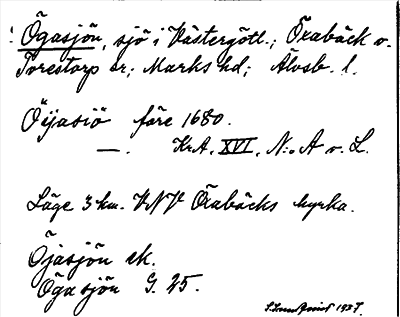 ! Ögasjön, sjö i Västergötl.; Öxabäck o.
Torestorp sr; Marks hd; Älvsb. l.
Öijasiö före 1680.
—. Kr.A. XVI, N:o A v. L.
Läge 3 km. VNV Öxabäcks kyrka.
Öjasjön ek.
Ögasjön G. 25.
1927.